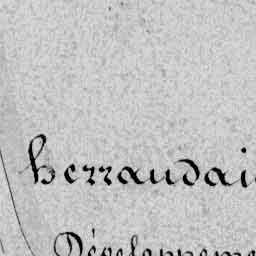 herraudai
Développeme